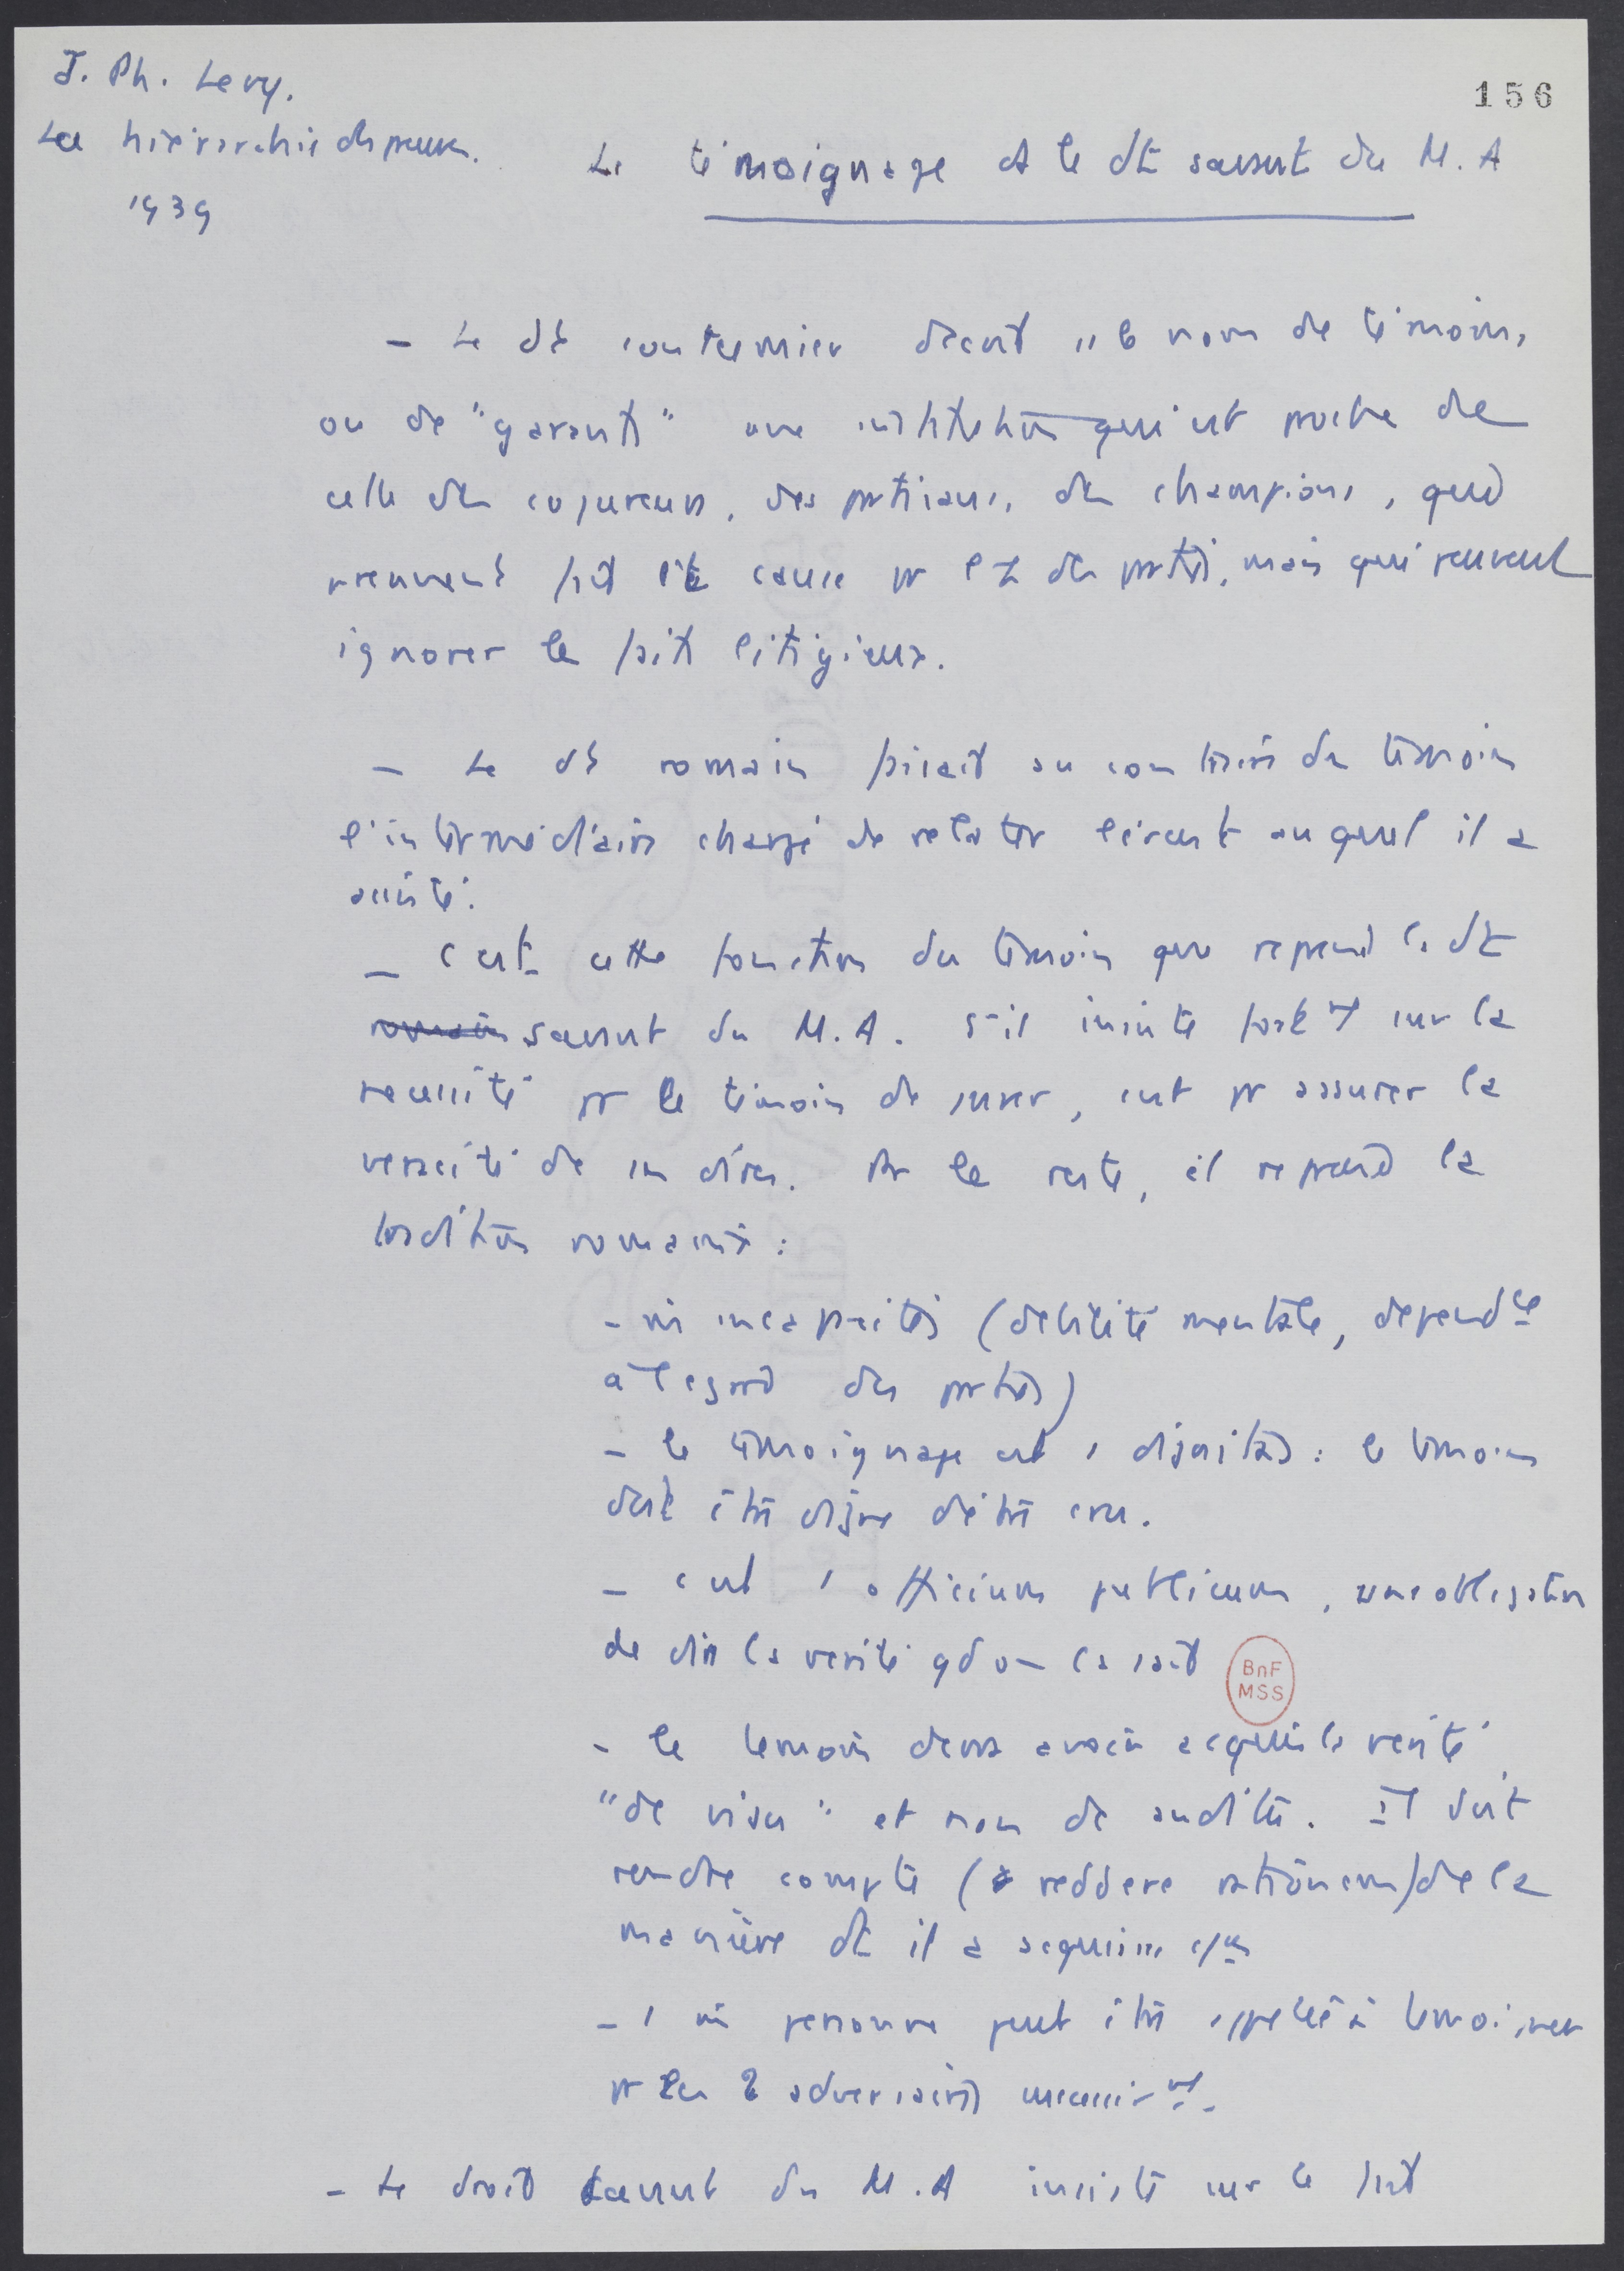 J. Ph. Levy.
La hiérarchie des preuves.
1939
156
Le témoignage et le dt savant du M. A
- Le dt coutumier décrit ss le nom de témoins,
ou de "garants" une institution qui est proche de
celle des cojureurs, des partisans, des champions, qui
prennent fait et cause pr l'1 des parties, mais qui peuvent
ignorer le fait litigieux.
- Le dt romain faisait au contraire du témoin
l'intermédiaire chargé de relater l'évent auquel il a
assisté.
- C'est cette fonction du témoin que reprend le dt
romain savant du M. A. S'il insiste fort sur la
nécessité pr le témoin de jurer, c'est pr assurer la
véracité de ses dires. Pr le reste, il reprend la
tradition romaine :
- incapacités (débilité mentale, dépendce
à l'égard des parties)
- le témoignage est 1 dignitas : le témoin
doit être digne d'être cru.
- c'est 1 officium publicum, une obligation
de dire la vérité qd on la sait
- le témoin devra avoir acquis la vérité
"de visu" et non de auditu. Il doit
rendre compte (reddere rationem) de la
manière dt il a acquis
- 1 personne peut être appelée à témoigner
pr les 2 adversaires
- Le droit savant du M. A insiste sur le fait